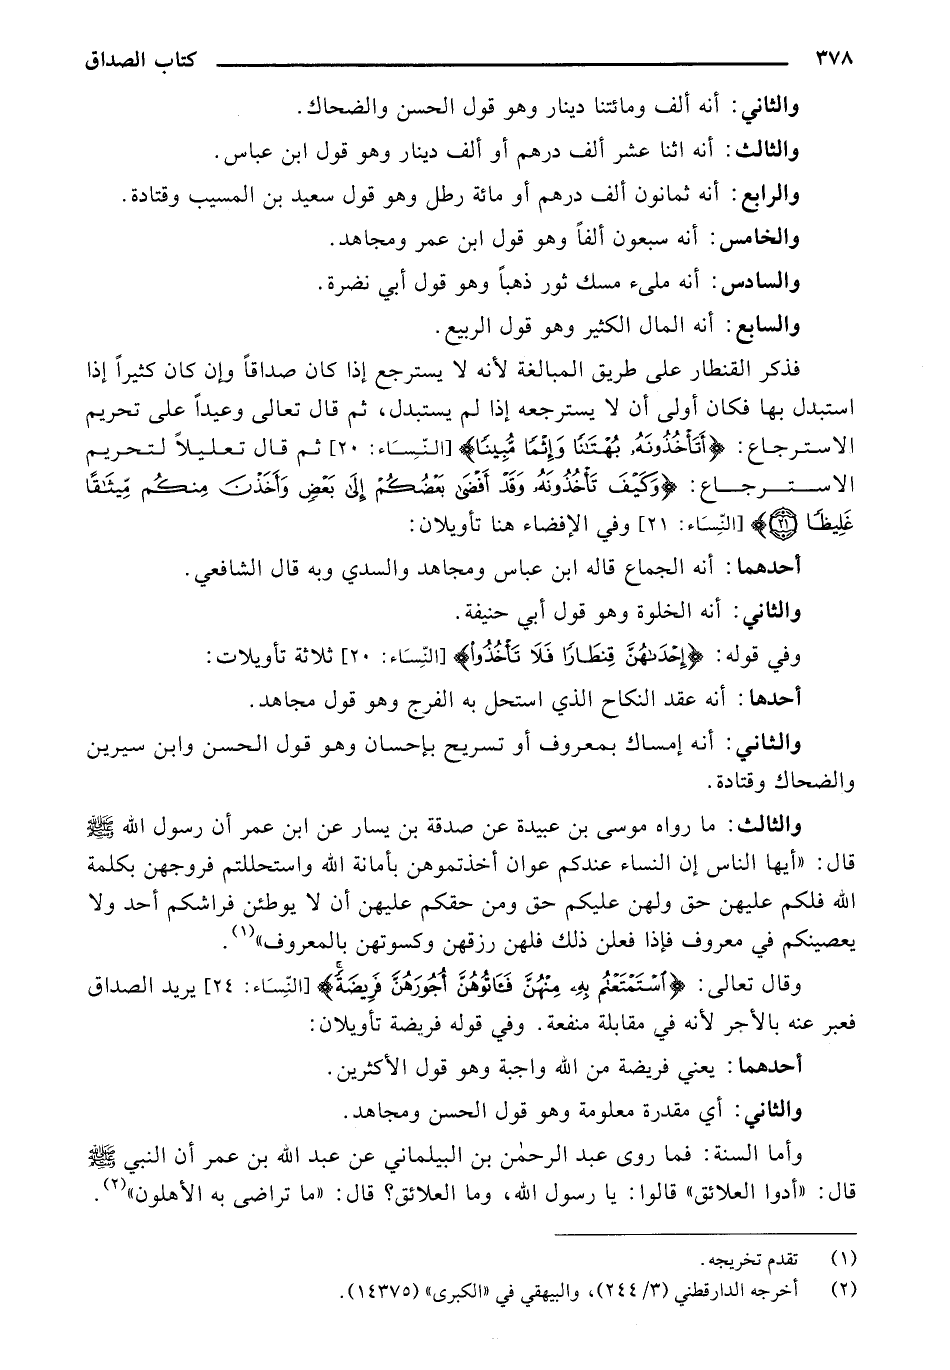 ٣٧٨ كتاب الصداق
والثاني: أنه ألف ومائتنا دينار وهو قول الحسن والضحاك.
والثالث: أنه اثنا عشر ألف درهم أو ألف دينار وهو قول ابن عباس.
والرابع: أنه ثمانون ألف درهم أو مائة رطل وهو قول سعيد بن المسيب وقتادة.
والخامس: أنه سبعون ألفاً وهو قول ابن عمر ومجاهد.
والسادس: أنه ملىء مسك ثور ذهباً وهو قول أبي نضرة.
والسابع: أنه المال الكثير وهو قول الربيع.
فذكر القنطار على طريق المبالغة لأنه لا يسترجع إذا كان صداقاً وإن كان كثيراً إذا
استبدل بها فكان أولى أن لا يسترجعه إذا لم يستبدل، ثم قال تعالى وعيداً على تحريم
الاسترجاع: ﴿أَتَأْخُذُونَهُۥ بُهْتَٰنًا وَإِثْمًا مُّبِينًا﴾ [النِّسَاء: ٢٠] ثم قال تعليلاً لتحريم
الاسترجاع: ﴿وَكَيْفَ تَأْخُذُونَهُۥ وَقَدْ أَفْضَىٰ بَعْضُكُمْ إِلَىٰ بَعْضٍ وَأَخَذْنَ مِنكُم مِّيثَٰقًا
غَلِيظًا ۝٢١﴾ [النِّسَاء: ٢١] وفي الإفضاء هنا تأويلان:
أحدهما: أنه الجماع قاله ابن عباس ومجاهد والسدي وبه قال الشافعي.
والثاني: أنه الخلوة وهو قول أبي حنيفة.
وفي قوله: ﴿إِحْدَىٰهُنَّ قِنطَارًا فَلَا تَأْخُذُوا۟﴾ [النِّسَاء: ٢٠] ثلاثة تأويلات:
أحدها: أنه عقد النكاح الذي استحل به الفرج وهو قول مجاهد.
والثاني: أنه إمساك بمعروف أو تسريح بإحسان وهو قول الحسن وابن سيرين
والضحاك وقتادة.
والثالث: ما رواه موسى بن عبيدة عن صدقة بن يسار عن ابن عمر أن رسول الله ﷺ
قال: «أيها الناس إن النساء عندكم عوان أخذتموهن بأمانة الله واستحللتم فروجهن بكلمة
الله فلكم عليهن حق ولهن عليكم حق ومن حقكم عليهن أن لا يوطئن فراشكم أحد ولا
يعصينكم في معروف فإذا فعلن ذلك فلهن رزقهن وكسوتهن بالمعروف»(١).
وقال تعالى: ﴿ٱسْتَمْتَعْتُم بِهِۦ مِنْهُنَّ فَـَٔاتُوهُنَّ أُجُورَهُنَّ فَرِيضَةً﴾ [النِّسَاء: ٢٤] يريد الصداق
فعبر عنه بالأجر لأنه في مقابلة منفعة. وفي قوله فريضة تأويلان:
أحدهما: يعني فريضة من الله واجبة وهو قول الأكثرين.
والثاني: أي مقدرة معلومة وهو قول الحسن ومجاهد.
وأما السنة: فما روى عبد الرحمٰن بن البيلماني عن عبد الله بن عمر أن النبي ﷺ
قال: «أدوا العلائق» قالوا: يا رسول الله، وما العلائق؟ قال: «ما تراضى به الأهلون»(٢).
(١) تقدم تخريجه.
(٢) أخرجه الدارقطني (٣/ ٢٤٤)، والبيهقي في «الكبرى» (١٤٣٧٥).